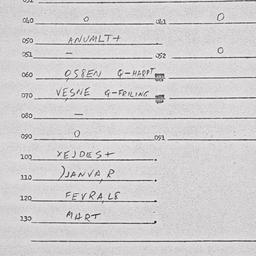 040 0 041 0
050 ANUMLT+
051 — 052 0
060 OSBEN G-HAPPT
070 VESNE G-FRILING
080 —
090 0 091
100 YEJDES+
110 )JANVA,R
120 FEVRA,L8
130 MART